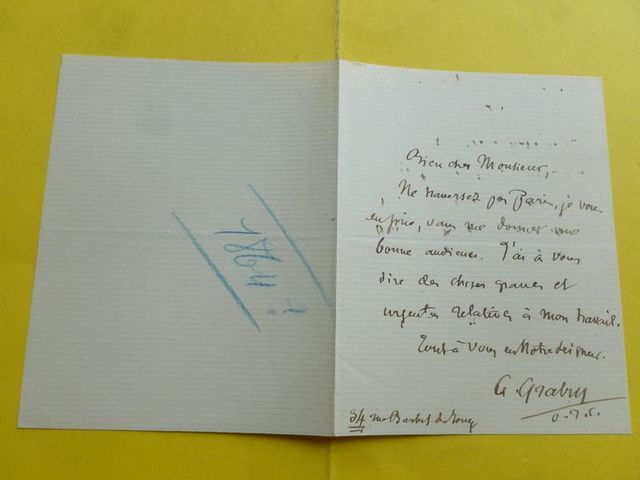 1864 ?
Bien cher Monsieur,
Ne traversez pas Paris, je vous
en prie, sans me donner une
bonne audience. J'ai à vous
dire des choses graves et
urgentes relatives à mon travail.
Tout à vous en Notre Seigneur.
34 rue Barbet de Jouy